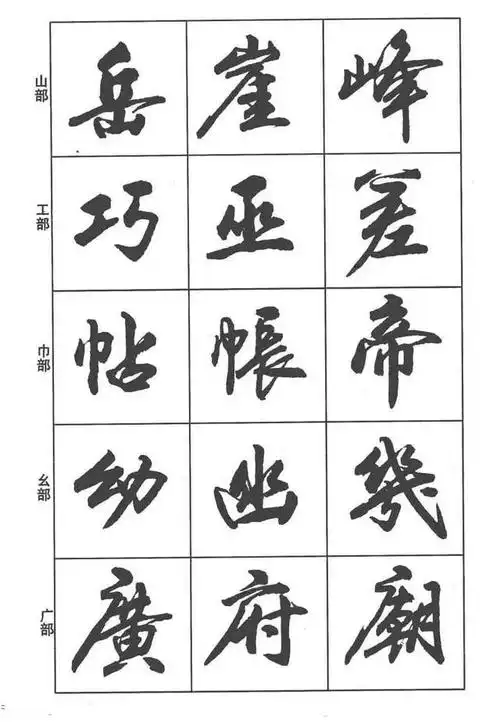 山部 岳崖峰
工部 巧巫差
巾部 帖帳帝
幺部 幼幽幾
广部 廣府廟